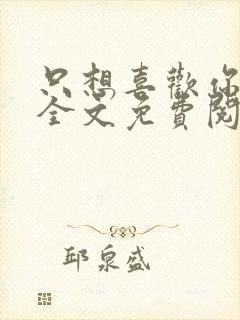 只想喜歡你
全文免費閱
邱泉盛